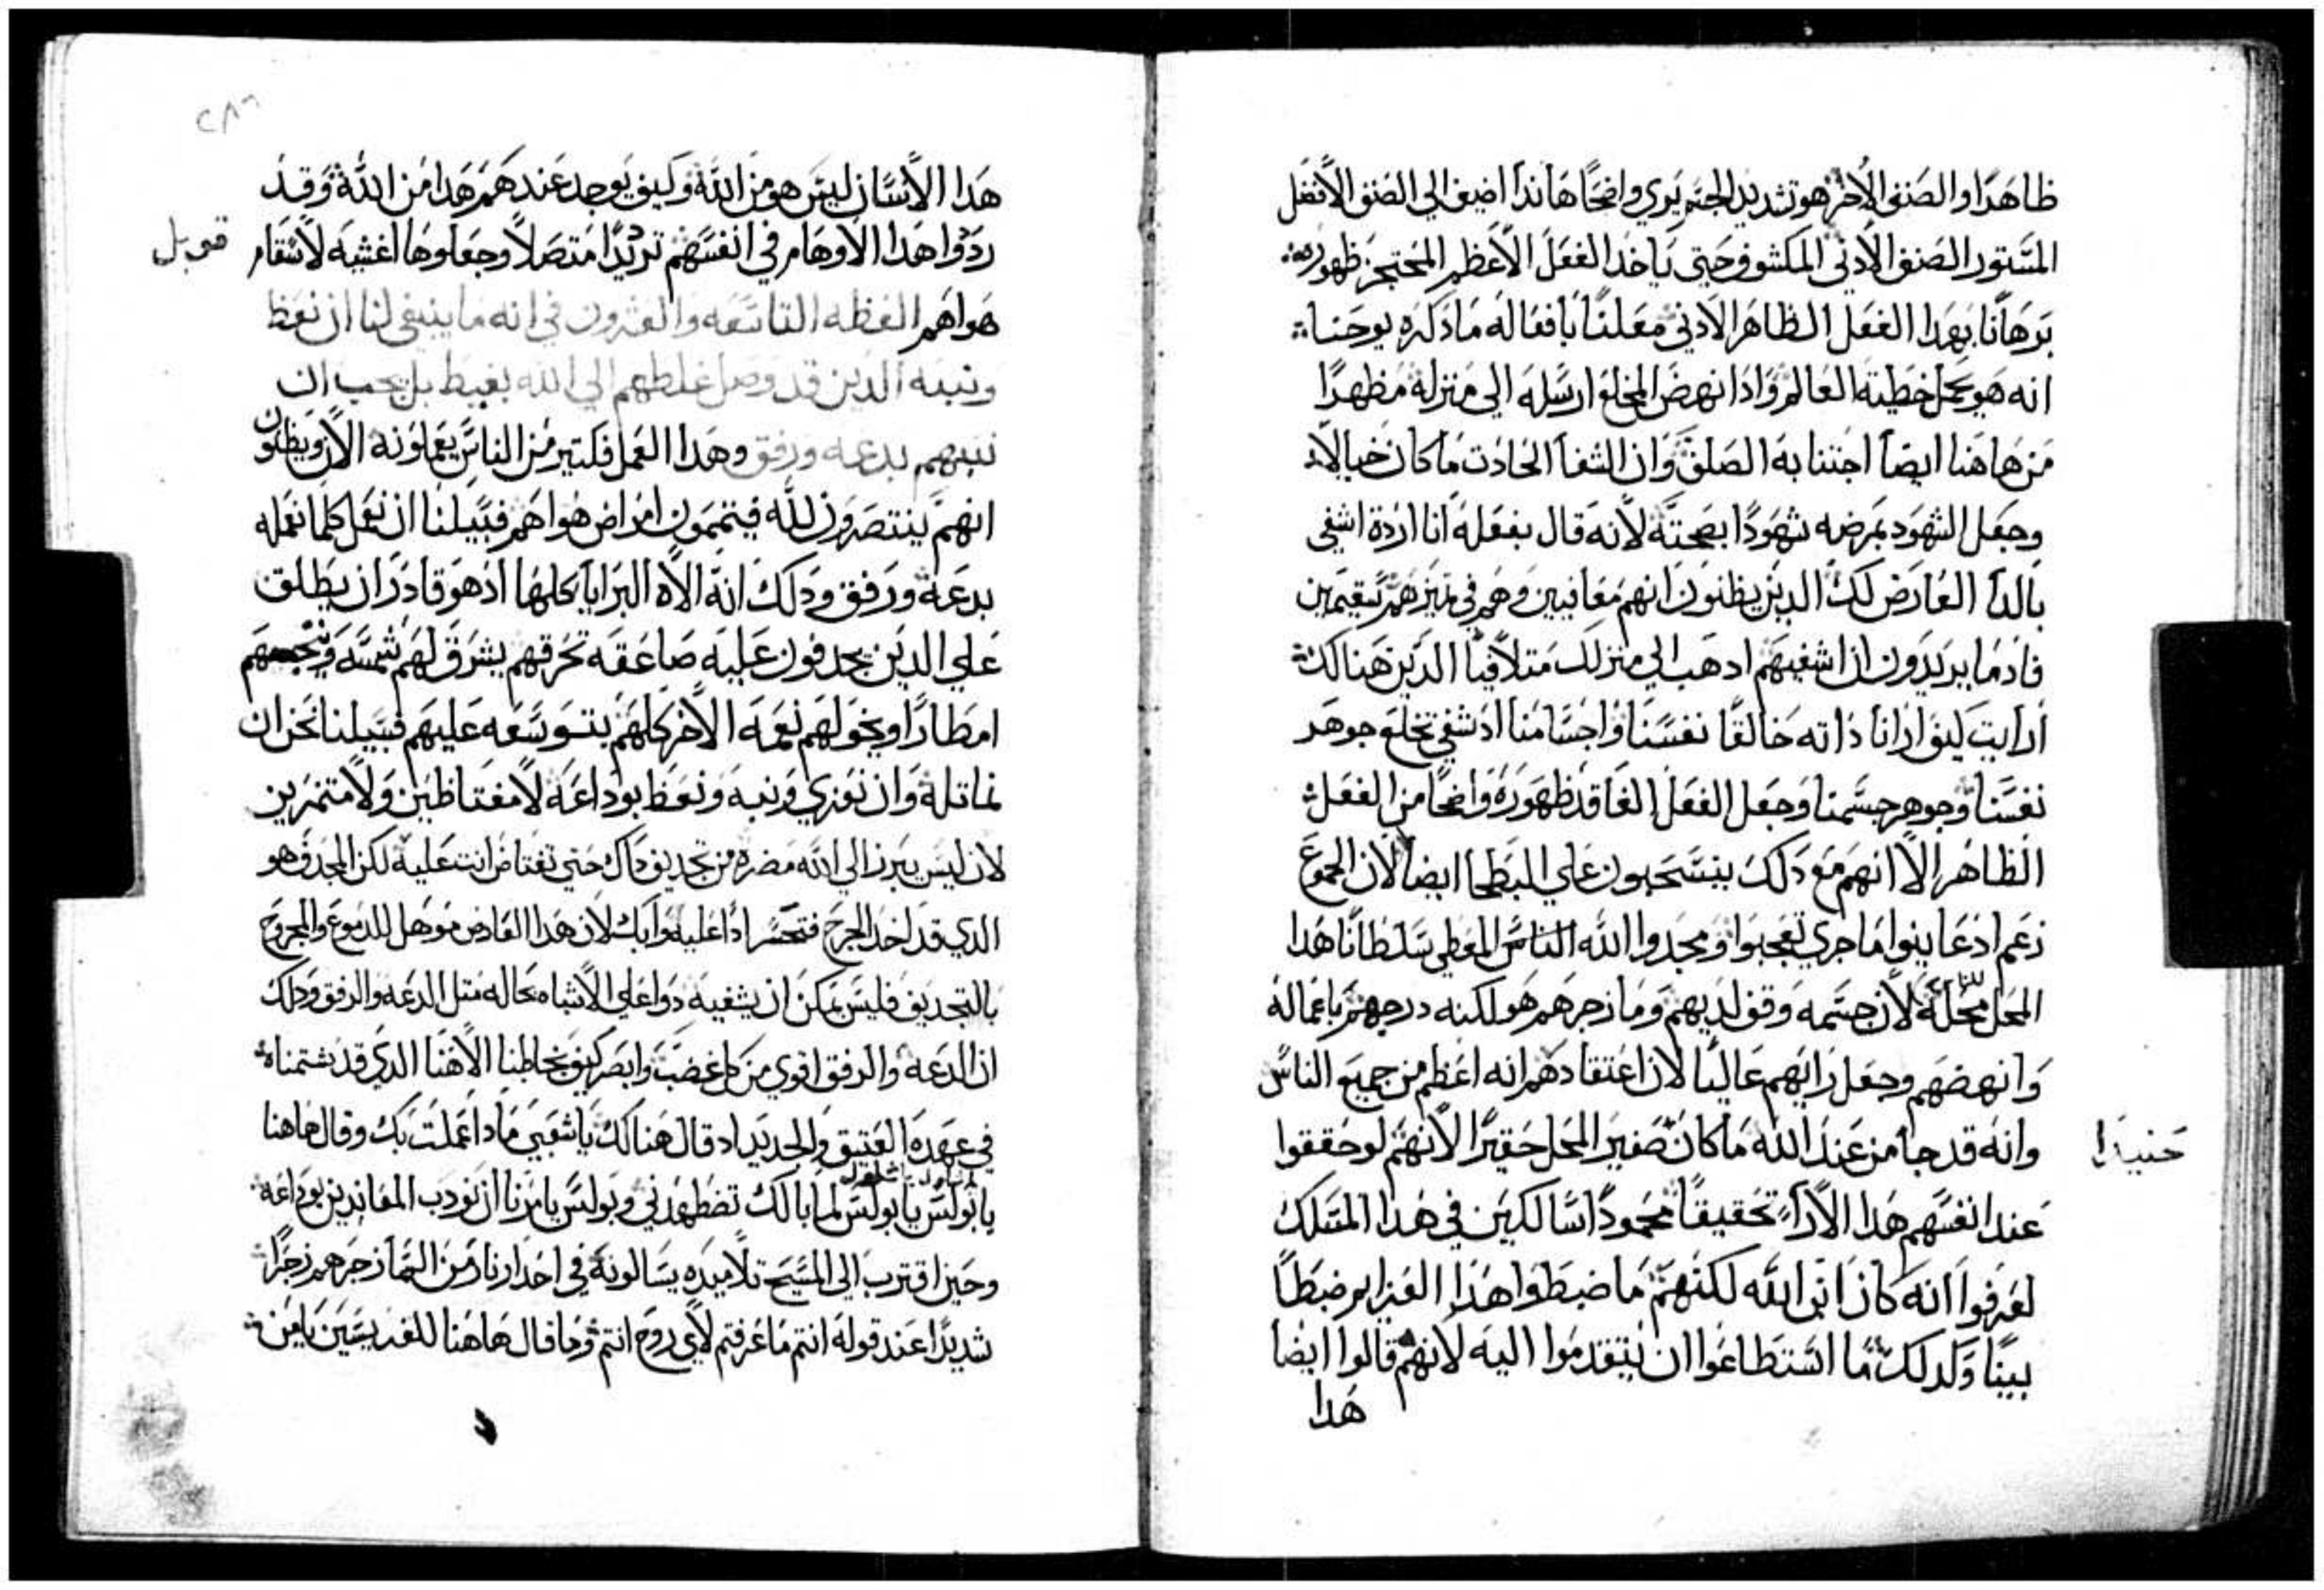 ظاهرًا والصنف الاخر هو تشديد الجسم يوي واضحًا هاندا اضيف الي الصنف الافضل
المستور الصنف الادني المكشوف حتي ياخد الفعل الاعظم المحتجز ظهوره
برهانًا بهدا الفعل الظاهر الادني معلنًا بافعاله مادكره يوحنا
انه هو يحمل خطية العالم وادا نهض المخلع ارسله الي منزله مظهرًا
من هاهنا ايضًا اجتنابه الصلف وان الشفا الحادت ماكان خيالاً
وجعل الشهود بمرضه شهودًا بصحته لانه قال بفعله انا اردة اشفي
بالدا العارض لك الدين يظنون انهم معافيين وهم في تميزهم سقيمين
فادما يريدون ان اشفيهم ادهب الي منزلك متلافيًا الدين هنالك
ارايت كيف ارانا داته خالقًا نفسنا واجسامنا اد شفي تخلع جوهر
نفسنا وجوهر جسمنا وجعل الفعل الفاقد ظهوره واضحًا من الفعل
الظاهر الا انهم مع دلك ينسحبون علي البطحا ايضًا لان الجموع
زعم اد عاينوا ماجري تعجبوا ومجدوا الله الناس المعطي سلطانًا هدا
المحل محله لان جسمه وقف لديهم وما زجرهم هو لكنه درجهم باعماله
وانهضهم وجعل رايهم عاليًا لان اعتقادهم انه اعظم من جميع الناس
وانه قد جا من عند الله ماكان صغير المحل حقيرًا لانهم لو حققوا
حنيدا
عند انفسهم هدا الارا تحقيقًا محمودًا سالكين في هدا المسلك
لعرفوا انه كان ابن الله لكنهم ما ضبطوا هدا العزايم ضبطًا
بينًا ولدلك ما استطاعوا ان يتقدموا اليه لانهم قالوا ايضًا
هدا
٢٨٦
هدا الانسان ليس هو من الله وكيف يوجد عندهم هدا من الله وقد
ردوا هدا الاوهام في انفسهم ترديدًا متصلاً وجعلوها اغشيه لاسقام
قوبل
هواهم العظه التاسعه والعشرون في انه ماينبغي لنا ان نعظ
وننبه الدين قد وصل غلطهم الي الله بغيظ بل يجب ان
ننبههم بدعه ورفق وهدا العمل فكتير من الناس يعملونه الان ويظنون
انهم ينتصرون لله فيتممون امراض هواهم فسبيلنا ان نعمل كلما نعمله
بدعة ورفق ودلك انه الاه البرايا كلها ادهو قادر ان يطلق
علي الدين يجدفون عليه صاعقه تحرقهم يشرق لهم شمسه
امطارًا ويخولهم نعمه الاخر كلهم بتوسعه عليهم فسبيلنا نحن ان
نماتله وان نعزي وننبه ونعظ بوداعة لامغتاظين ولامتنمرين
لان ليس يبرز الي الله مضره من تجديف داك حتي تغتاض انت عليه لكن المجدف هو
الدي قد اخد الجرح فتحسر ادا عليه وابك لان هدا العارض موهل للدموع والمجروح
بالتجديف فليس يمكن ان يشفيه دوا علي الاشباه بحاله متل الدعه والرفق ودلك
ان الدعه والرفق اقوي من كل غضب وابصر كيف يخاطبنا الاهنا الدي قد شتمناه
في عهده العتيق والحديد اد قال هنالك ياشعبي مادا عملت بك وقال هاهنا
يابولس يابولس لما بالك تضطهدني وبولس يامرنا ان نودب المعاندين بوداعه
وحين اقترب الي المسيح تلاميده يسالونه في احدار نار من السما زجرهم زجرًا
شديدًا عند قوله انتم ماعرفتم لاي روح انتم وما قال هاهنا للفريسين يامن